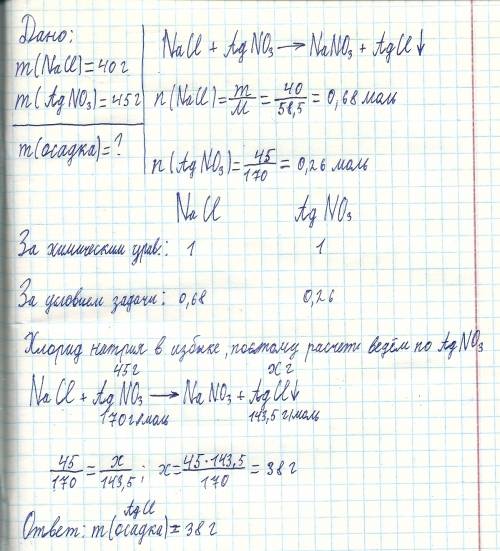 Дано:
m(NaCl)=40г
m(AgNO₃)=45г
m(осадка)=?
NaCl + AgNO₃ → NaNO₃ + AgCl↓
n(NaCl)= m/M = 40/58,5 = 0,68 моль
n(AgNO₃)= 45/170 = 0,26 моль
NaCl AgNO₃
За химическим урав.: 1 1
За условием задачи: 0,68 0,26
Хлорид натрия в избыке, поэтому расчети ведём по AgNO₃
45г xг
NaCl + AgNO₃ → NaNO₃ + AgCl↓
170г/моль 143,5г/моль
45/170 = x/143,5; x= 45·143,5/170 = 38г
AgCl
Ответ: m(осадка)= 38г